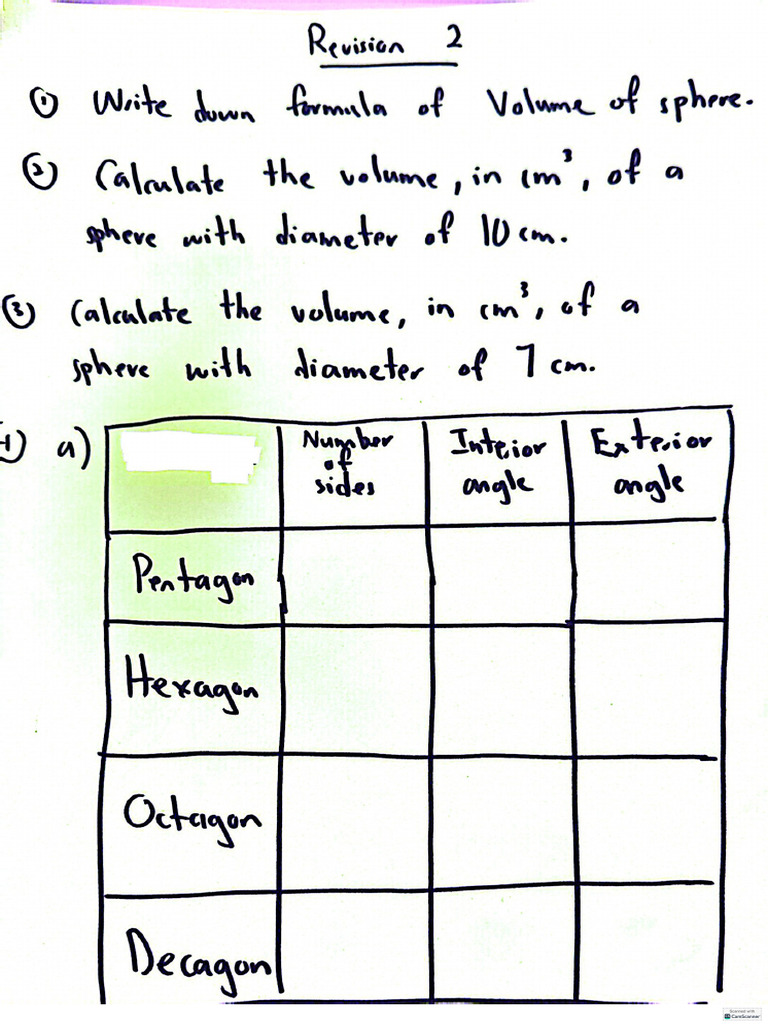 Revision 2
① Write down formula of Volume of sphere.
② Calculate the volume, in cm³, of a
sphere with diameter of 10 cm.
③ Calculate the volume, in cm³, of a
sphere with diameter of 7 cm.
a)
Number of sides
Interior angle
Exterior angle
Pentagon
Hexagon
Octagon
Decagon
Scanned with
CamScanner